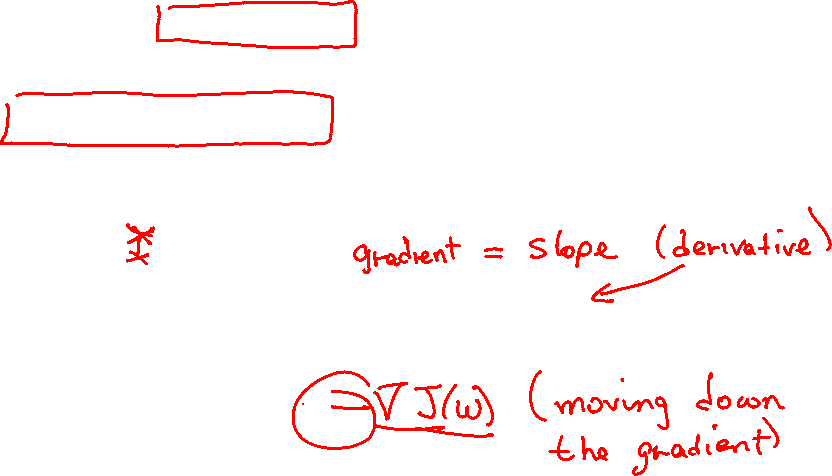 gradient = slope (derivative)
-∇J(w) (moving down
the gradient)